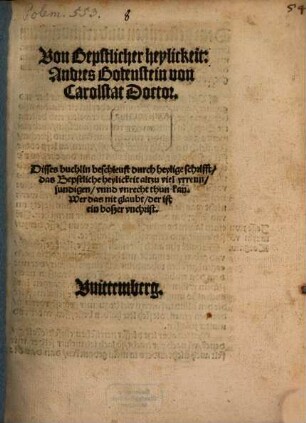 Polem. 553.
8
54
Von Bepstlicher heylickeit:
Andres Bodenstein von
Carolstat Doctor.
Disses buchlin beschleust durch heylige schrifft/
das Bepstliche heylickeit altzu viel yrrenn/
sundigen/ vnnd vnrecht thun kan.
Wer das nit glaubt/ der ist
ein boßer vnchrist.
Vuittemberg.